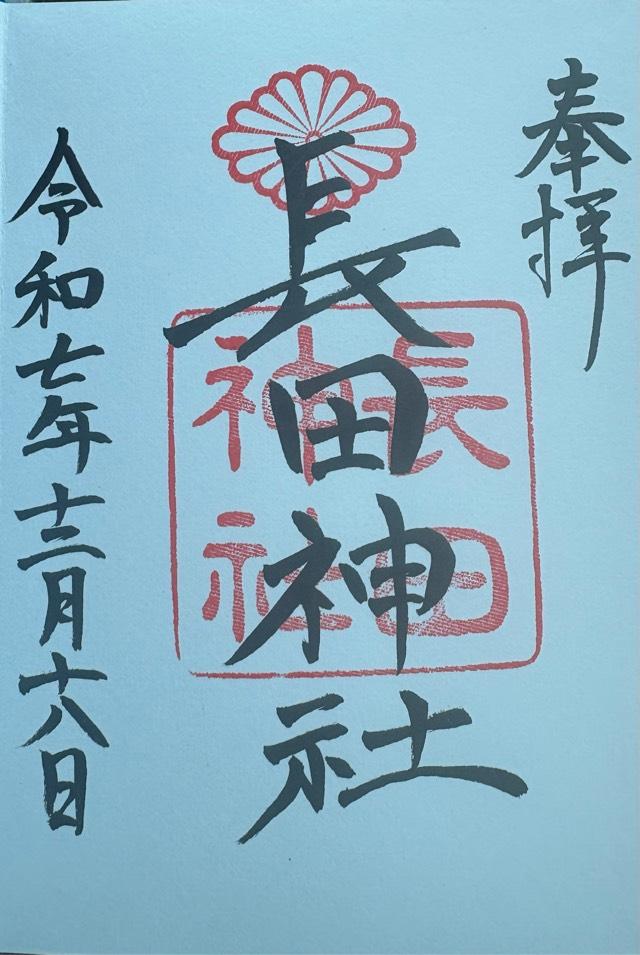 奉拝
長田神社
長田
神社
令和七年十二月十八日